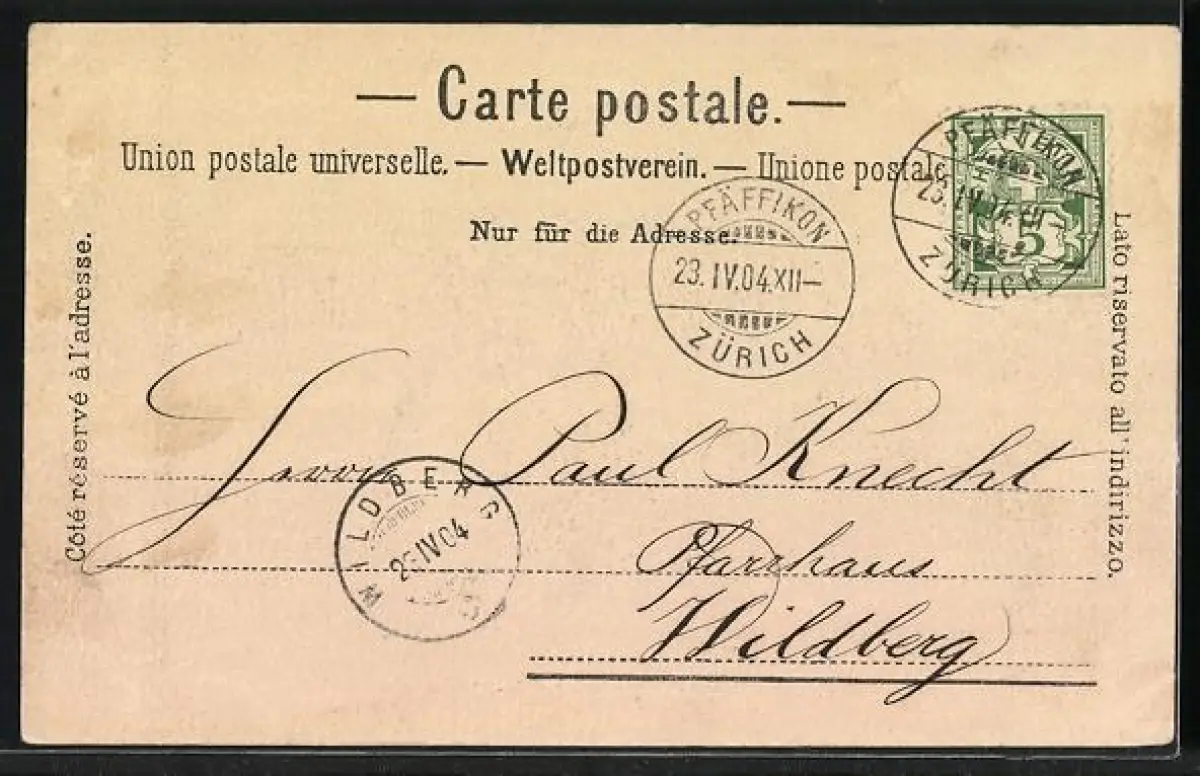 — Carte postale. —
Union postale universelle. — Weltpostverein. — Unione postale
Nur für die Adresse.
Côté réservé à l'adresse.
Lato riservato all'indirizzo.
PFÄFFIKON
23.IV.04.XII—
ZÜRICH
PFÄFFIKON
23.IV.04.XII
ZÜRICH
5
Herrn Paul Knecht
Pfarrhaus
Wildberg
WILDBERG
23.IV.04